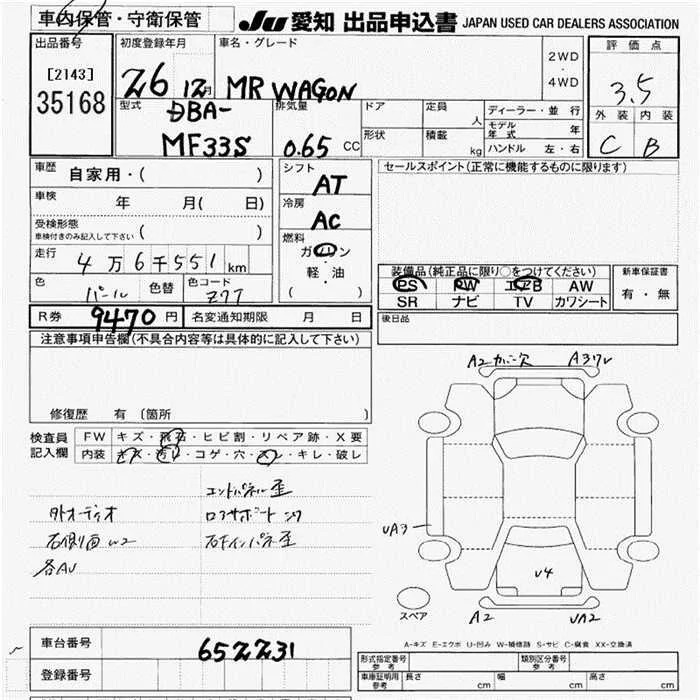 車内保管・守衛保管
JU 愛知 出品申込書 JAPAN USED CAR DEALERS ASSOCIATION
出品番号
[2143]
35168
初度登録年月
26 12月
車名・グレード
MR WAGON
2WD
・
4WD
評価点
3.5
外装 内装
C B
型式
DBA-
MF33S
排気量
0.65 CC
ドア
定員
人
形状
積載
kg
ディーラー・並行
モデル年式 年
ハンドル 左・右
車歴 自家用・( )
車検 年 月( 日)
受検形態
車検付きのみ記入して下さい ( )
走行 4万6千551km
色 パール 色替 色コード Z7T
シフト
AT
冷房
AC
燃料
ガソリン
・
軽・油
( )
セールスポイント(正常に機能するものに限ります)
装備品(純正品に限り○をつけてください)
PS PW エアB AW
SR ナビ TV カワシート
新車保証書
有・無
R券 9470円 名変通知期限 月 日
後日品
注意事項申告欄(不具合内容等は具体的に記入して下さい)
修復歴 有 〔箇所 〕
検査員
記入欄
FW キズ・飛石・ヒビ割・リペア跡・X要
内装 キズ・汚レ・コゲ・穴・スレ・キレ・破レ
エンドパネル歪
外オーディオ
右側面W2
各AU
A2
A3
UA3
U4
A2
UA2
スペア
A-キズ E-エクボ U-凹み W-補修跡 S-サビ C-腐食 XX-交換済
車台番号 652231
登録番号
形式指定番号
参考
類別区分番号
参考
車庫証明用
参考
長さ cm 幅 cm 高さ cm